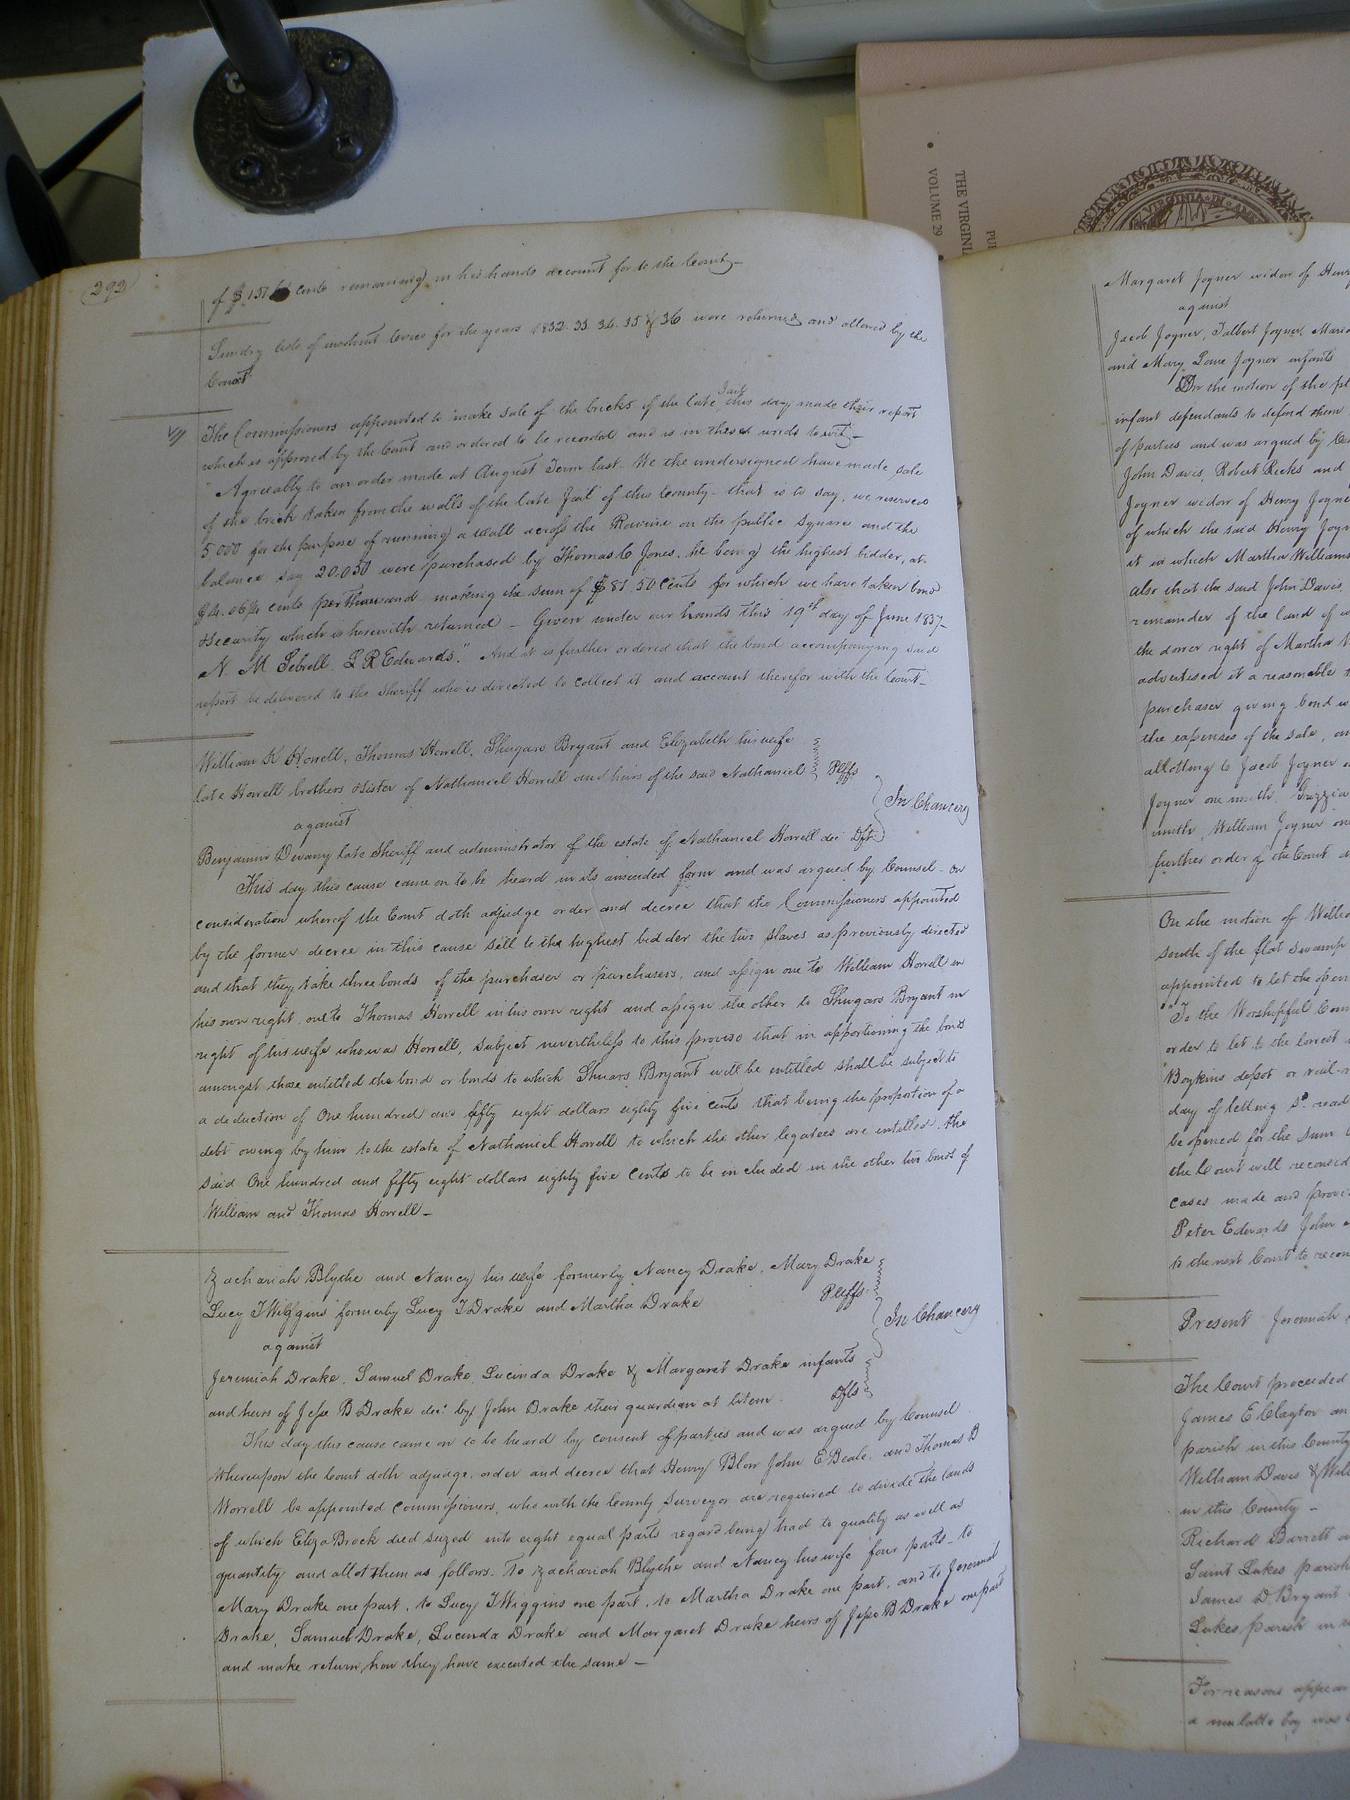 THE VIRGINI
VOLUME 29
VIRGINIA IN AME
292
of $ 137 cents remaining in his hands account for to the County—
Sundry lists of insolvent levies for the years 1832. 33. 34. 35 & 36 were returned and allowed by the
Court
The Commissioners appointed to make sale of the bricks of the late Jail this day made their report
which is approved by the Court and ordered to be recorded and is in these words to wit—
"Agreeably to an order made at August Term last. We the undersigned have made sale
of the brick taken from the walls of the late Jail of this County— that is to say, we reserved
5.000 for the purpose of running a wall across the Ravine on the public square and the
balance say 20.050 were purchased by Thomas C Jones, he being the highest bidder, at
$4.06¼ cents per Thousand making the sum of $81.50 Cents for which we have taken bond
& security which is herewith returned — Given under our hands this 19th day of June 1837—
N. M Sebrell. L R Edwards." And it is further ordered that the bond accompanying said
report be delivered to the Sheriff who is directed to collect it and account therefor with the Court—
William K Horrell, Thomas Horrell, Shugars Bryant and Elizabeth his wife
late Horrell brothers & sister of Nathaniel Horrell and heirs of the said Nathaniel Pltffs
In Chancery
against
Benjamin Devany late Sheriff and administrator of the estate of Nathaniel Horrell dec Dft.
This day this cause came on to be heard in its amended form and was argued by Counsel— on
consideration whereof the Court doth adjudge order and decree that the Commissioners appointed
by the former decree in this cause sell to the highest bidder the two slaves as previously directed
and that they take three bonds of the purchaser or purchasers, and assign one to William Horrell in
his own right, one to Thomas Horrell in his own right and assign the other to Shugars Bryant in
right of his wife who was Horrell, subject nevertheless to this proviso that in apportioning the bonds
amongst those entitled the bond or bonds to which Shuars Bryant will be entitled shall be subject to
a deduction of One hundred and fifty eight dollars eighty five cents that being the proportion of a
debt owing by him to the estate of Nathaniel Horrell to which the other legatees are entitled. the
said One hundred and fifty eight dollars eighty five Cents to be included in the other two bonds of
William and Thomas Horrell—
Zachariah Blythe and Nancy his wife formerly Nancy Drake. Mary Drake
Lucy T Wiggins formerly Lucy T Drake and Martha Drake Pltffs
In Chancery
against
Jeremiah Drake. Samuel Drake, Lucinda Drake & Margaret Drake infants
and heirs of Jesse B Drake decd by John Drake their guardian at litem. Dfts
This day this cause came on to be heard by consent of parties and was argued by Counsel
Whereupon the Court doth adjudge, order and decree that Henry Blow John E Beale, and Thomas B
Worrell be appointed commissioners, who with the County Surveyor are required to divide the lands
of which Eliza Brock died seized into eight equal parts regard being had to quality as well as
quantity and allot them as follows. To Zachariah Blythe and Nancy his wife four parts. to
Mary Drake one part, to Lucy T Wiggins one part, to Martha Drake one part, and to Jeremiah
Drake, Samuel Drake, Lucinda Drake and Margaret Drake heirs of Jesse B Drake one part
and make return how they have executed the same—
Margaret Joyner widow of Henr
against
Jacob Joyner, Talbert Joyner, Mari
and Mary Joyner infants
On the motion of the pl
infant defendants to defend them
of parties and was argued by
John Davis, Robert Ricks and
Joyner widow of Henry Joyne
of which the said Henry Joyn
it in which Martha Williams
also that the said John Davis,
remainder of the land of
the dower right of Martha
advertised at a reasonable
purchaser giving bond
the expenses of the sale, an
allotting to Jacob Joyner
Joyner one ninth,
ninth, William Joyner one
further order of the Court
On the motion of Willia
south of the flat swamp
appointed to let the
"To the Worshipful Coun
order to let to the lowest
Boykins depot or rail
day of letting
be opened for the sum
the Court will reconsid
cases made and provi
Peter Edwards John
to the next Court to recon
Present Jeremiah
The Court proceeded
James E Clayton an
parish in this County
William Davis & Will
in this County—
Richard Barrett
Saint Lukes parish
James D. Bryant
Lukes parish in
For reasons appear
a mulatto boy was